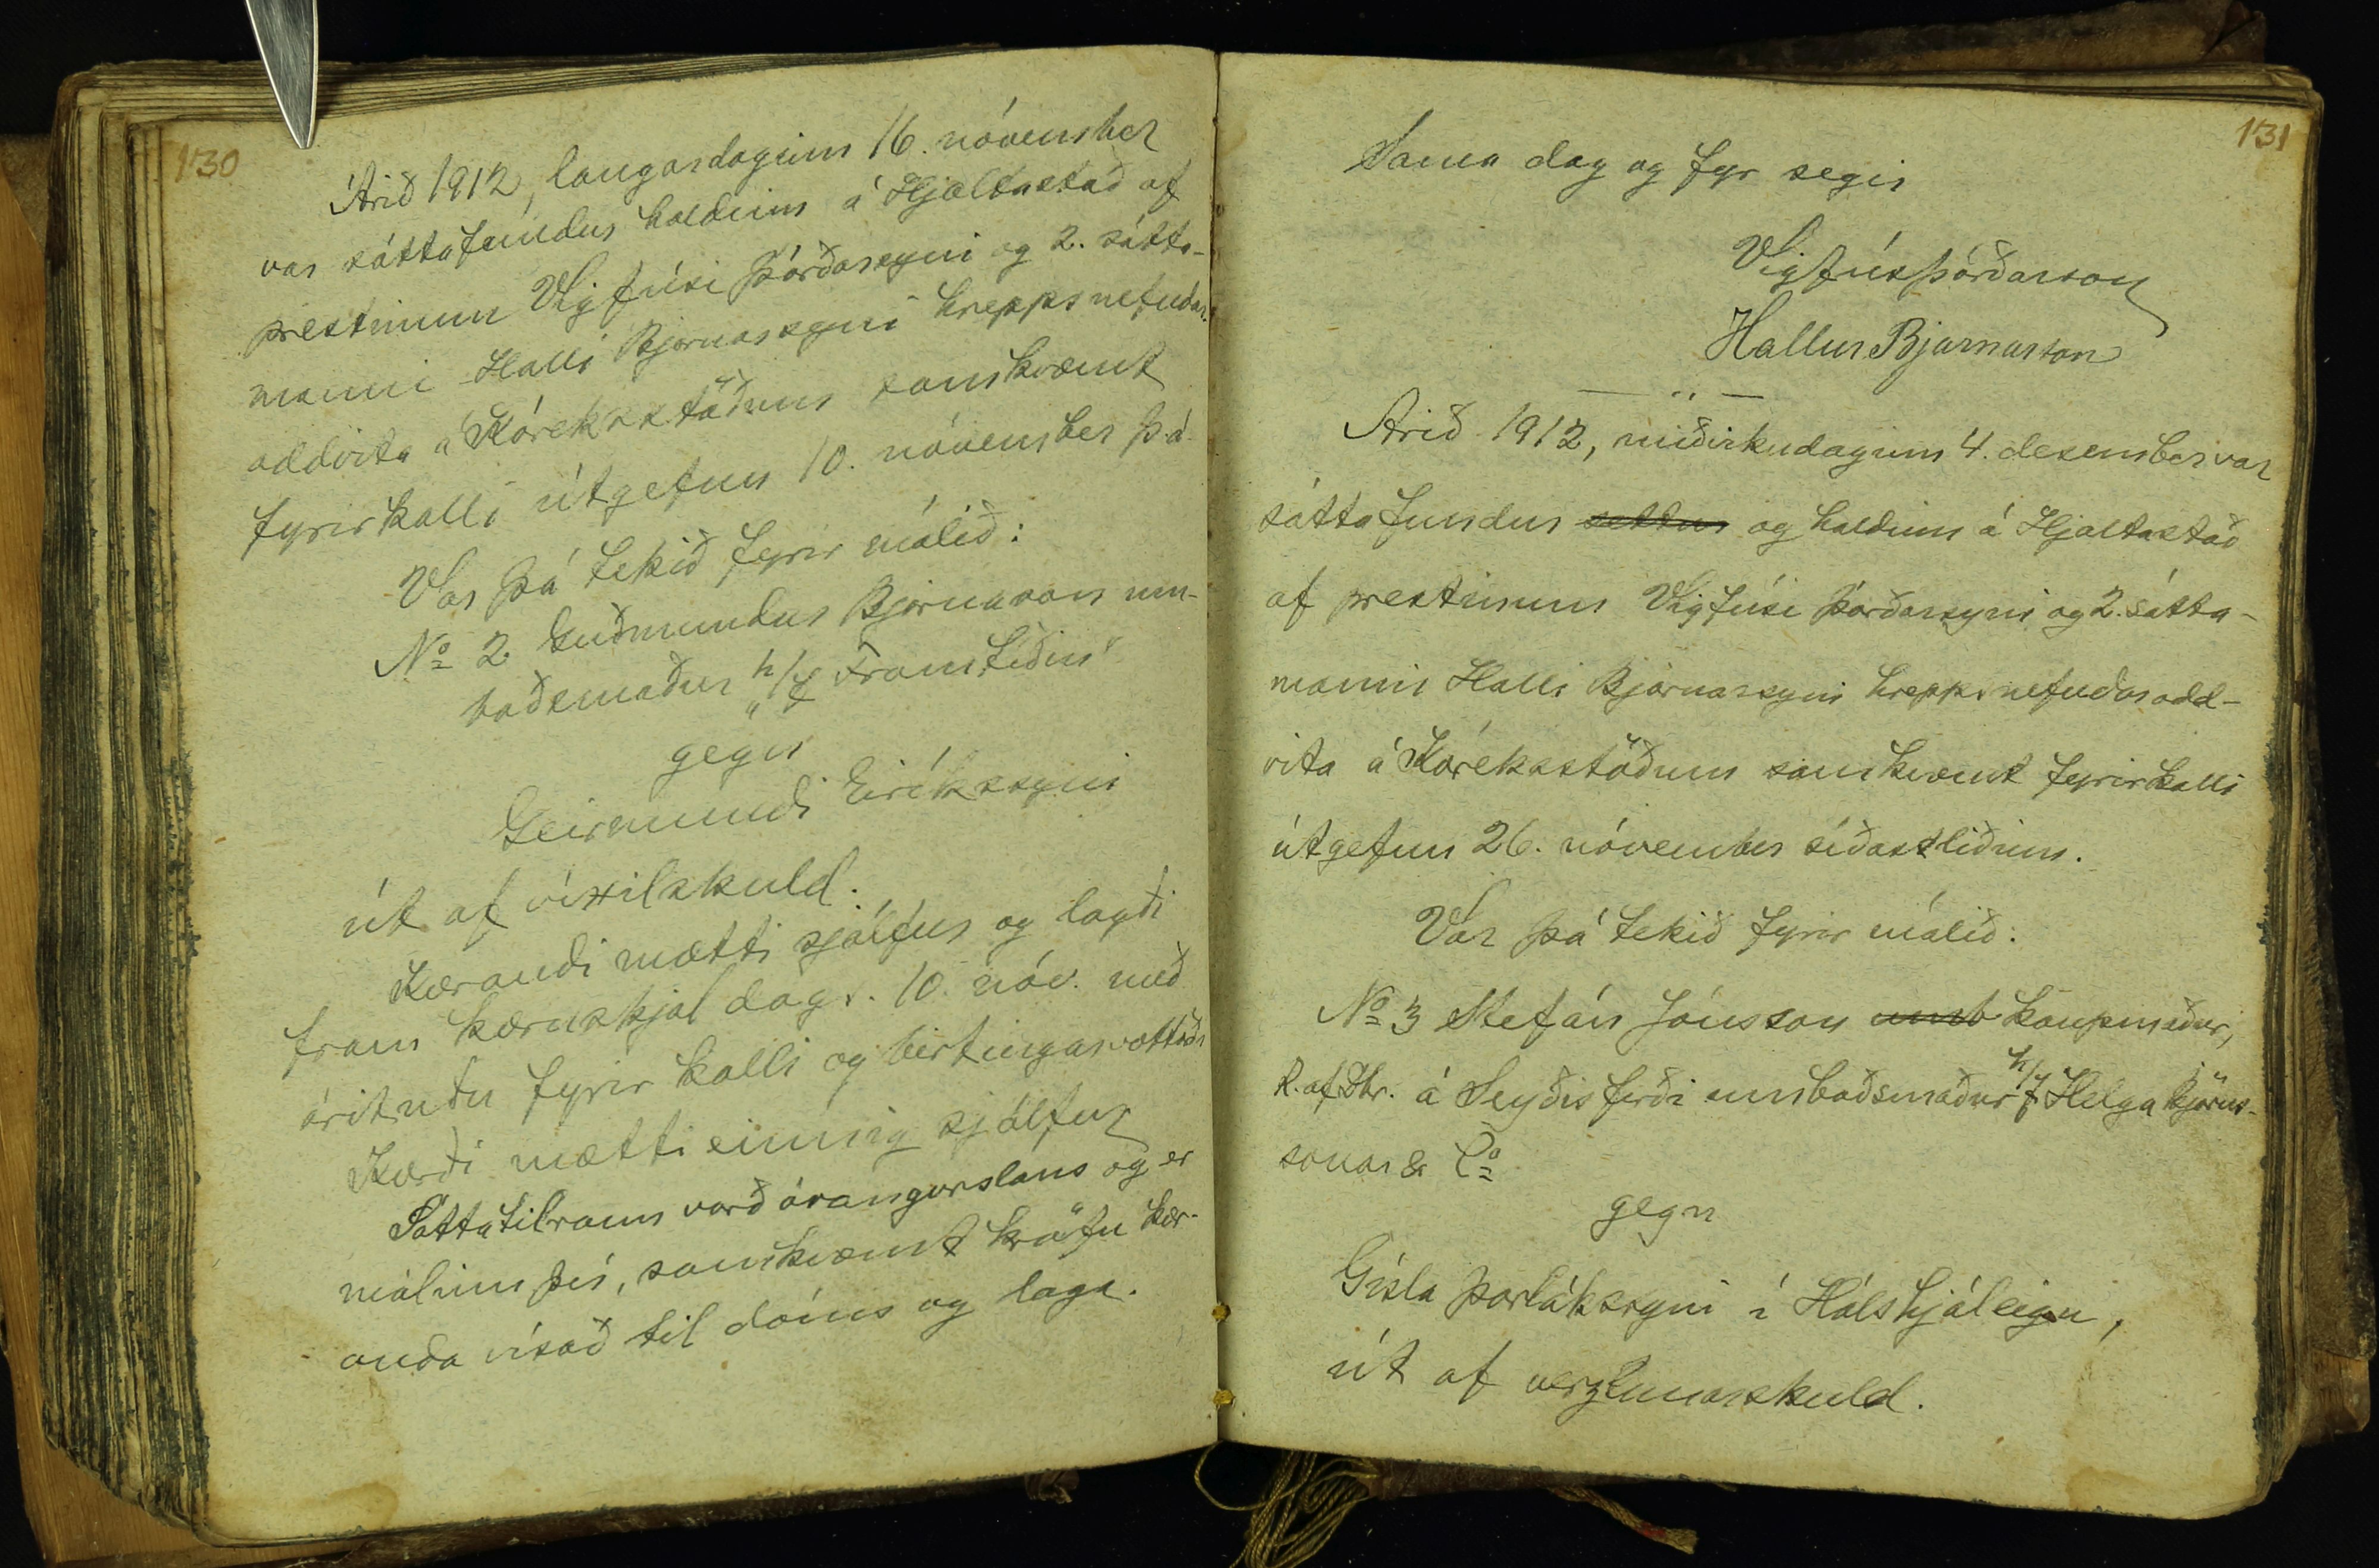 130
Árið 1912, laugardaginn 16. nóvember
var sáttafundur haldinn á Hjaltastað af
prestinum Vigfúsi Þórðarsyni og 2. sátta-
manni Halli Bjarnarsyni hreppsnefndar-
oddvita á Kóreksstöðum samkvæmt
fyrirkalli útgefnu 10. nóvember þ.á.
Var þá tekið fyrir málið:
No 2. Guðmundur Bjarnason um-
boðsmaður h/f „Framtíðin"
gegn
Geirmundi Eiríkssyni
út af víxilskuld.
Kærandi mætti sjálfur og lagði
fram kæruskjal dags. 10. nóv. með
árituðu fyrirkalli og birtingarvottorði
Kærði mætti einnig sjálfur
Sáttatilraun varð árangurslaus og er
málinu því, samkvæmt kröfu kær-
anda vísað til dóms og laga.
131
Sama dag og fyr segir
Vigfús Þórðarson
Hallur Bjarnarson
— „ —
Árið 1912, miðvikudaginn 4. desember var
sáttafundur settur og haldinn á Hjaltastað
af prestinum Vigfúsi Þórðarsyni og 2. sátta-
manni Halli Bjarnarsyni hreppsnefndarodd-
vita á Kóreksstöðum samkvæmt fyrirkalli
útgefnu 26. nóvember síðastliðinn.
Var þá tekið fyrir málið:
No 3 Stefán Jónsson umb kaupmaður,
R. af Dbr. á Seyðisfirði umboðsmaður h/f Helga Björns-
sonar & Co
gegn
Gísla Þorlákssyni í Hálshjáleigu,
út af verzlunarskuld.